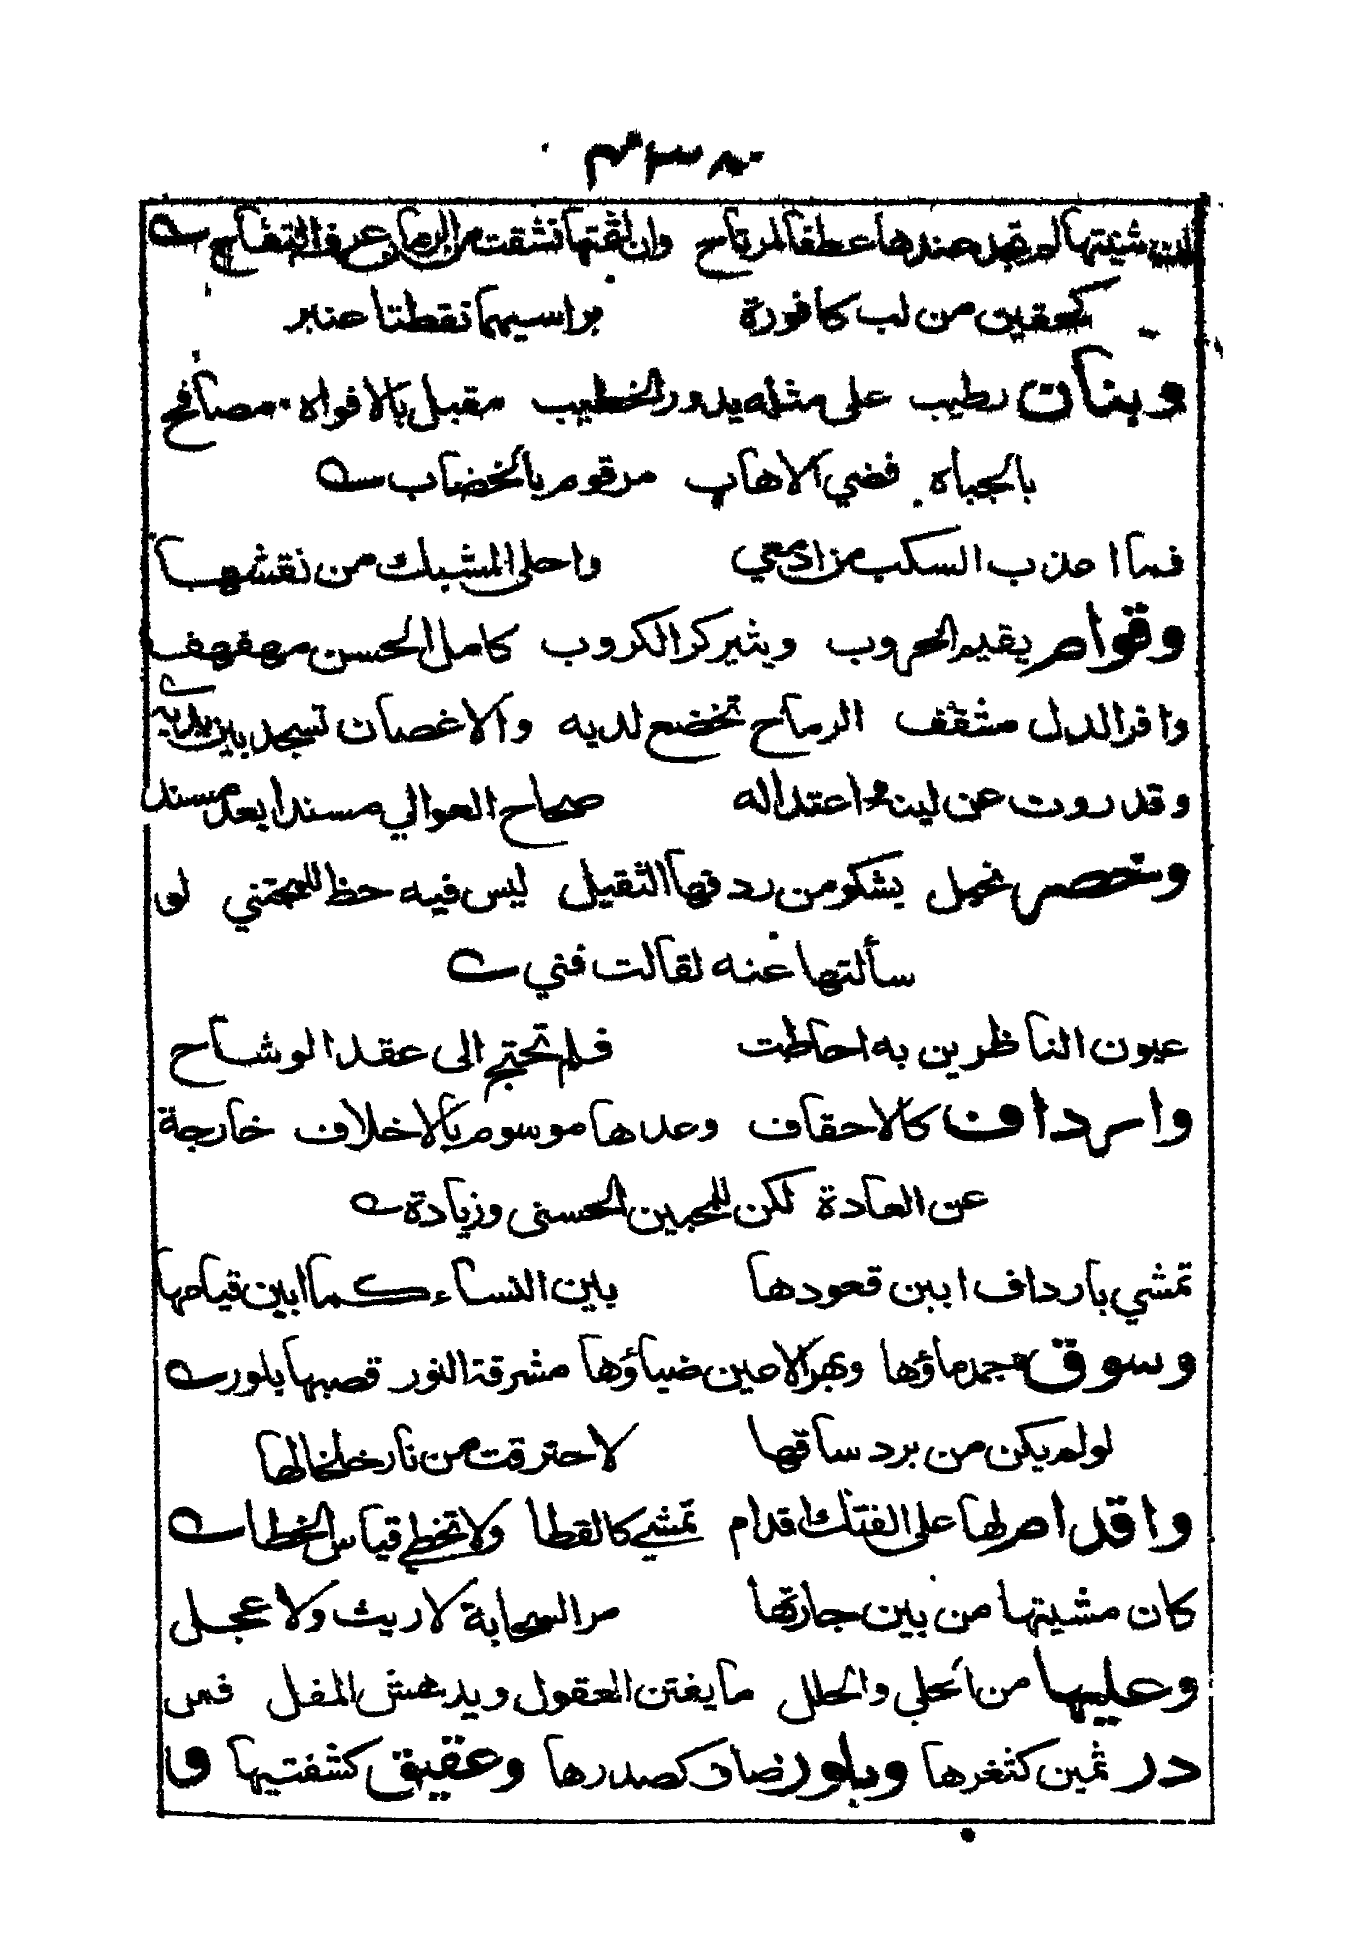 شئتها لم تجد عندها عطفا لمرتاح وان لثمتها نشقت من الرمان عرف التفاح
كحقين من لب كافورة براسيهما نقطتا عنبر
وبنان رطيب على مثله يدور الخطيب مقبل بالافواه مصافح
بالجباه فضي الاهاب مرقوم بالخضاب
فما اعذب السكب من ادمعي واحلى المشبك من نقشها
وقوام يقيم الحروب ويثير كرا الكروب كامل الحسن مهفهف
وافر الدل مثقف الرماح تخضع لديه والاغصان تسجد بين يديه
وقد روت عن لينه واعتداله صحاح العوالي مسندا بعد مسند
وخصر نحيل يشكو من ردفها الثقيل ليس فيه حظ للمجتني لو
سألتها عنه لقالت فني
عيون الناظرين به احاطت فلم تحتج الى عقد الوشاح
وارداف كالاحقاف وعدها موسوم بالاخلاف خارجة
عن العادة لكن للمحبين الحسنى وزيادة
تمشي بارداف ابين قعودها بين النساء كما ابين قيامها
وسوق جمد ماؤها وبهر الاعين ضياؤها مشرقة النور قصبها بلور
لو لم يكن من برد ساقها لاحترقت من نار خلخالها
واقدام لها على الفتك اقدام تمشي كالقطا ولا تخطي قياس الخطا
كان مشيتها من بين جارتها مر السحابة لا ريث ولا عجل
وعليها من الحلي والحلل ما يفتن العقول ويدهش المقل فمن
در ثمين كثغرها وبلور صاف كصدرها وعقيق كشفتيها و